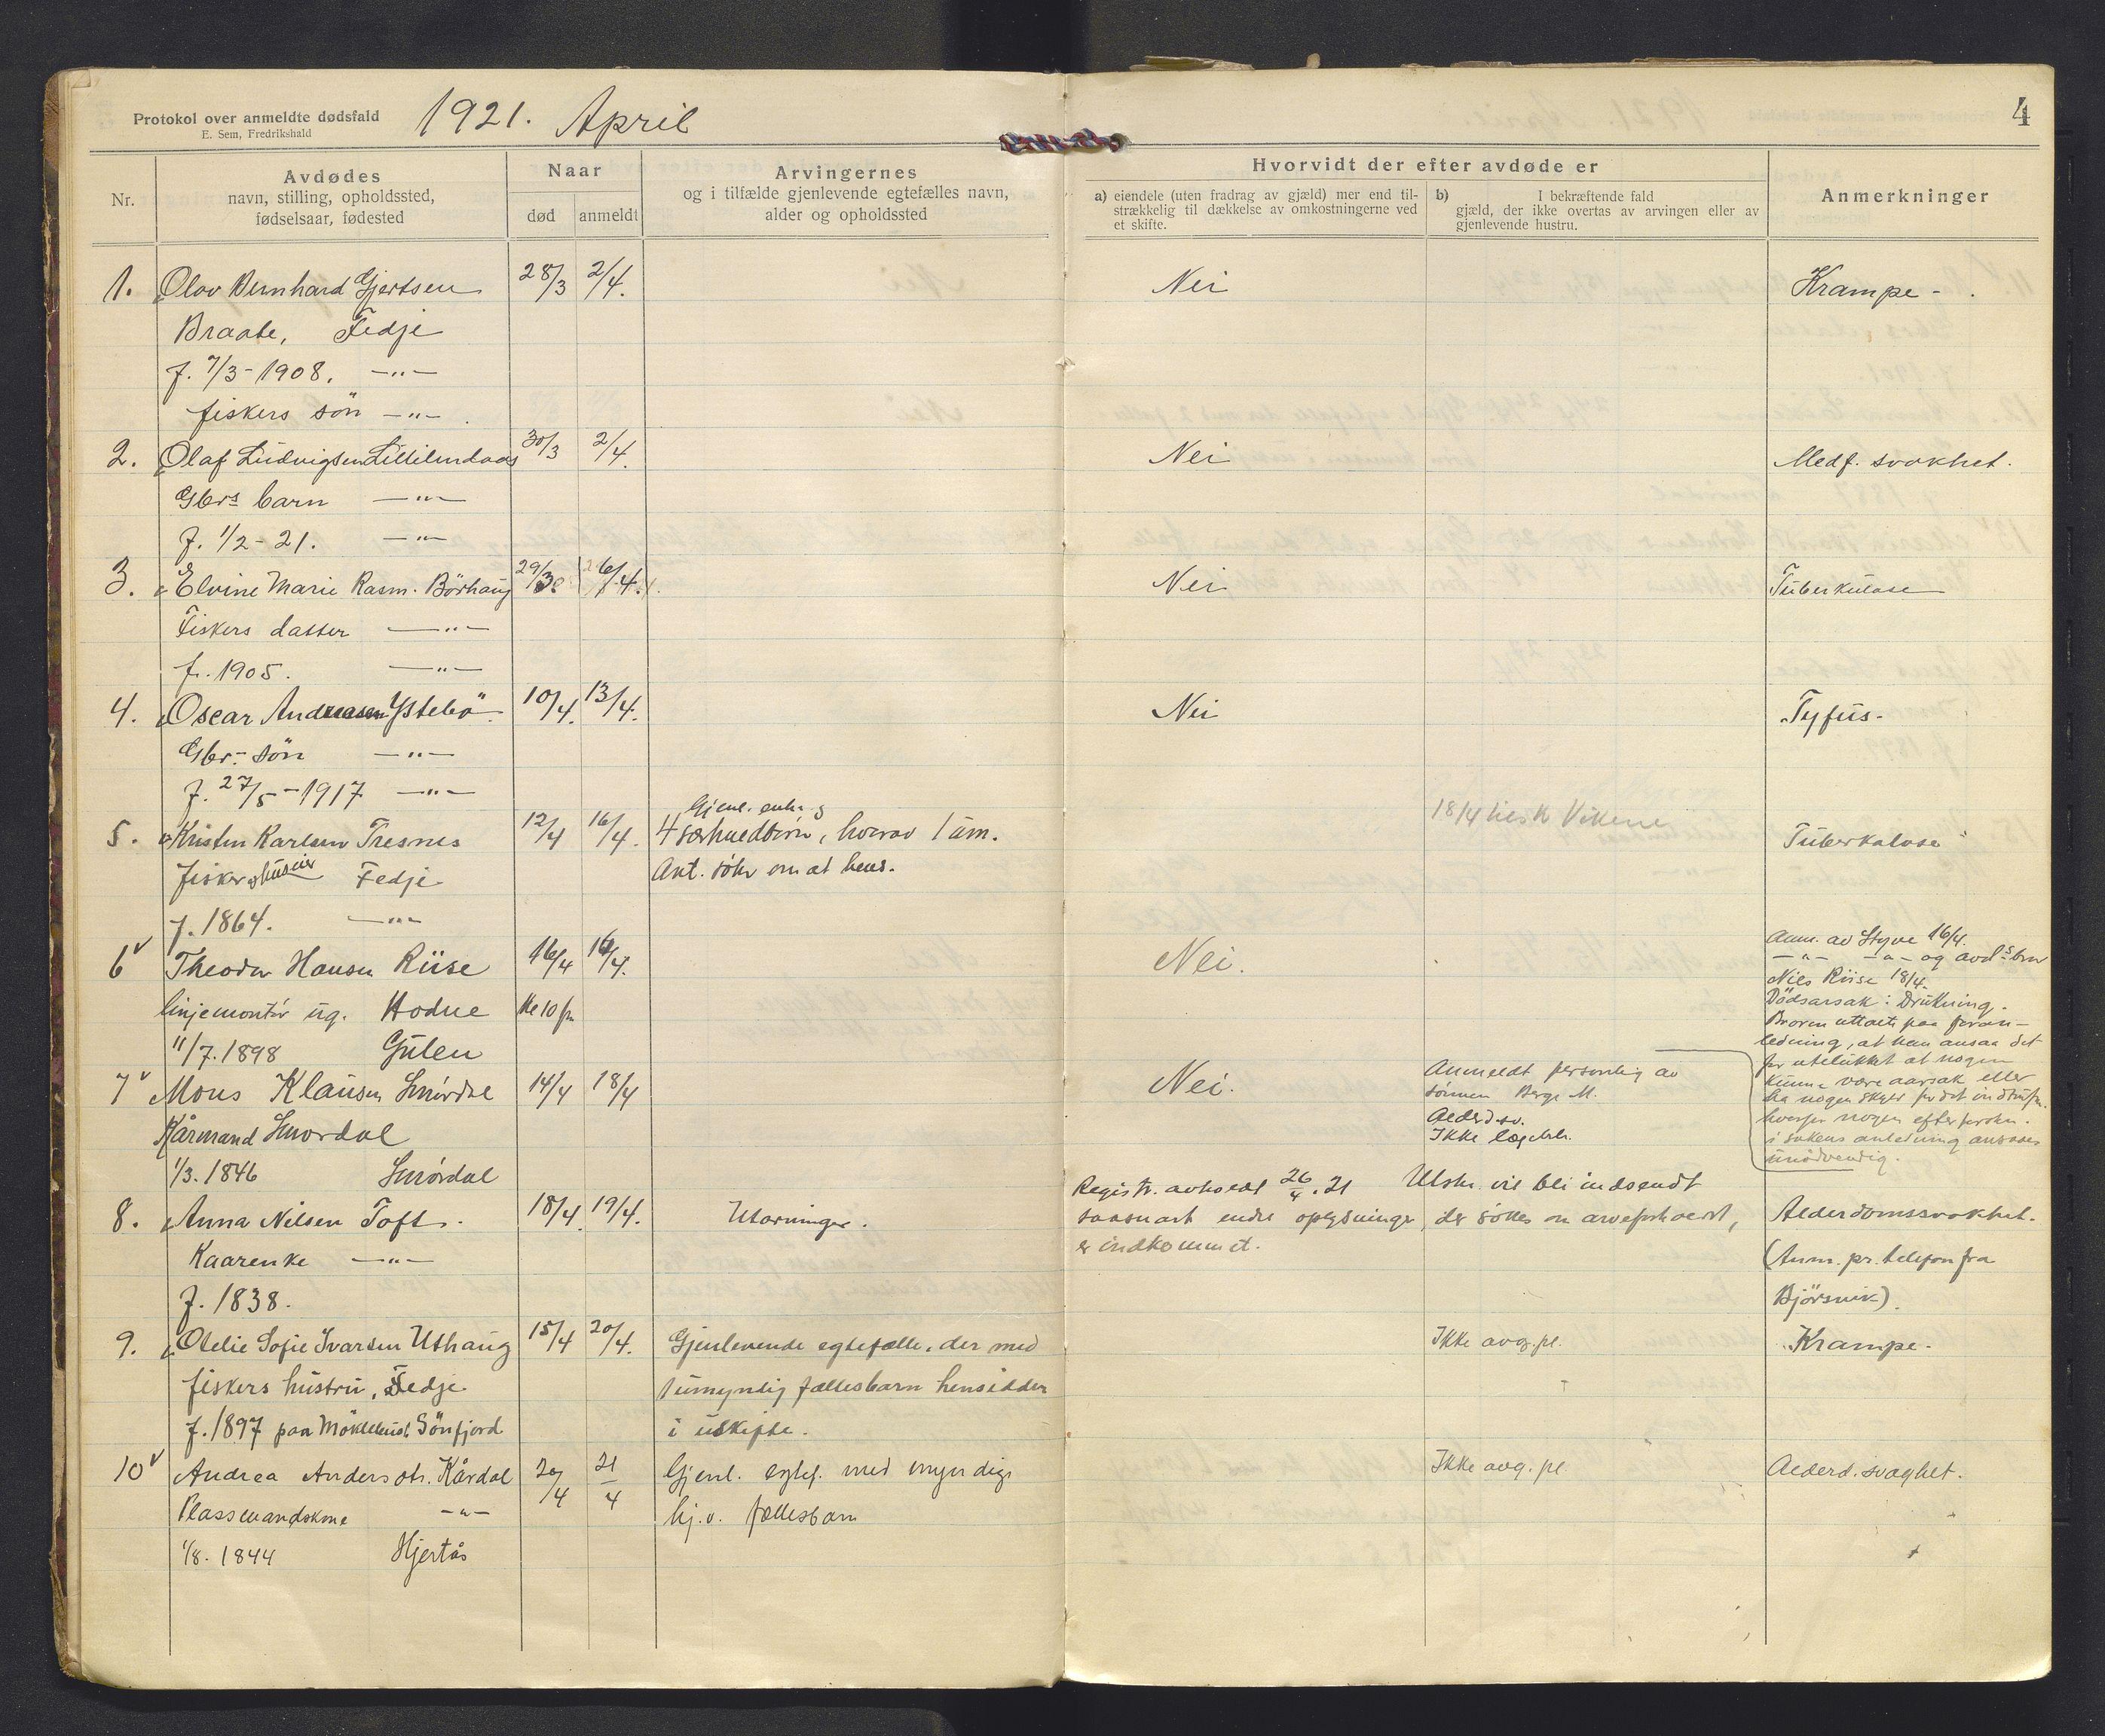 Protokol over anmeldte dødsfald
E. Sem, Fredrikshald
1921. April
4
Nr.
Avdødes
navn, stilling, opholdssted,
fødselsaar, fødested
Naar
død
anmeldt
Arvingernes
og i tilfælde gjenlevende egtefælles navn,
alder og opholdssted
Hvorvidt der efter avdøde er
a) eiendele (uten fradrag av gjæld) mer end til-
strækkelig til dækkelse av omkostningerne ved
et skifte.
b) I bekræftende fald
gjæld, der ikke overtas av arvingen eller av
gjenlevende hustru.
Anmerkninger
1. Olav Bernhard Gjertsen 28/3 2/4. Nei Krampe -
Braate, Fedje
f. 7/3-1908. —"—
fiskers sön —"—
2. Olaf Ludvigsen 30/3 2/4. Nei Medf. svakhet.
Gbrs barn —"—
f. 1/2-21. —"—
3. Elvine Marie Rasm. Börhaug 29/3 6/4. Nei Tuberkulose
Fiskers datter —"—
f. 1905. —"—
4. Oscar Andreassen Ystebö 10/4. 13/4. Nei Tyfus.
Gbr. sön —"—
f. 27/5-1917 —"—
Gjenl. enke og
5. Kristen Karlsen Tresnes 12/4 16/4. 4 særkuldbørn, hvorav 1 um. 18/4 Tuberkulose
Fisker og huseier Fedje Ant. söker om at hens.
f. 1864. —"—
6 Theodor Hansen Riise 16/4 16/4. Nei. Anm. av Styve 16/4.
—"— —"— og avd.s bror
linjemontör ug. Hodne kl 10 fm Nils Riise 18/4.
Dödsarsak: Drukning.
11/7. 1898 Gulen
Broren uttalte paa foran-
ledning, at han ansaa det
for utelukket at nogen
kunne være aarsak eller
ha nogen skyld for det indtrufne.
hvorfor nogen efterforskn.
i sakens anledning ansees
unödvendig.
7 Mons Klausen Smördal 14/4 18/4 Nei. Anmeldt personlig av
sönnen Berge M.
Kårmand Smordal Alderd.sv.
Ikke lægebeh.
1/3. 1846 Smördal
8. Anna Nilsen Toft. 18/4. 19/4. Utarvinger. Registr. avholdt 26/4. 21 Utskr. vil bli indsendt
saasnart endel oplysninger, der sökes om arveforhold,
er indkommet. Alderdomssvakhet.
Kaarenke —"— (Anm. pr. telefon fra
f. 1838. Björsvik).
9. Otelie Sofie Ivarsen Uthaug 15/4 20/4. Gjenlevende egtefælle, der med Ikke avg.pl. Krampe.
fiskers hustru, Fedje 1 umyndig fællesbarn hensidder
f. 1897 paa Söndfjord i uskifte.
10 Andrea Andersdtr. Kårdal 20/4 21/4 Gjenl. egtef. med myndige Ikke avg. pl. Alderd.svaghet.
Plassmandskone —"— hj.v. fællesbarn
1/8. 1844 Hjertås